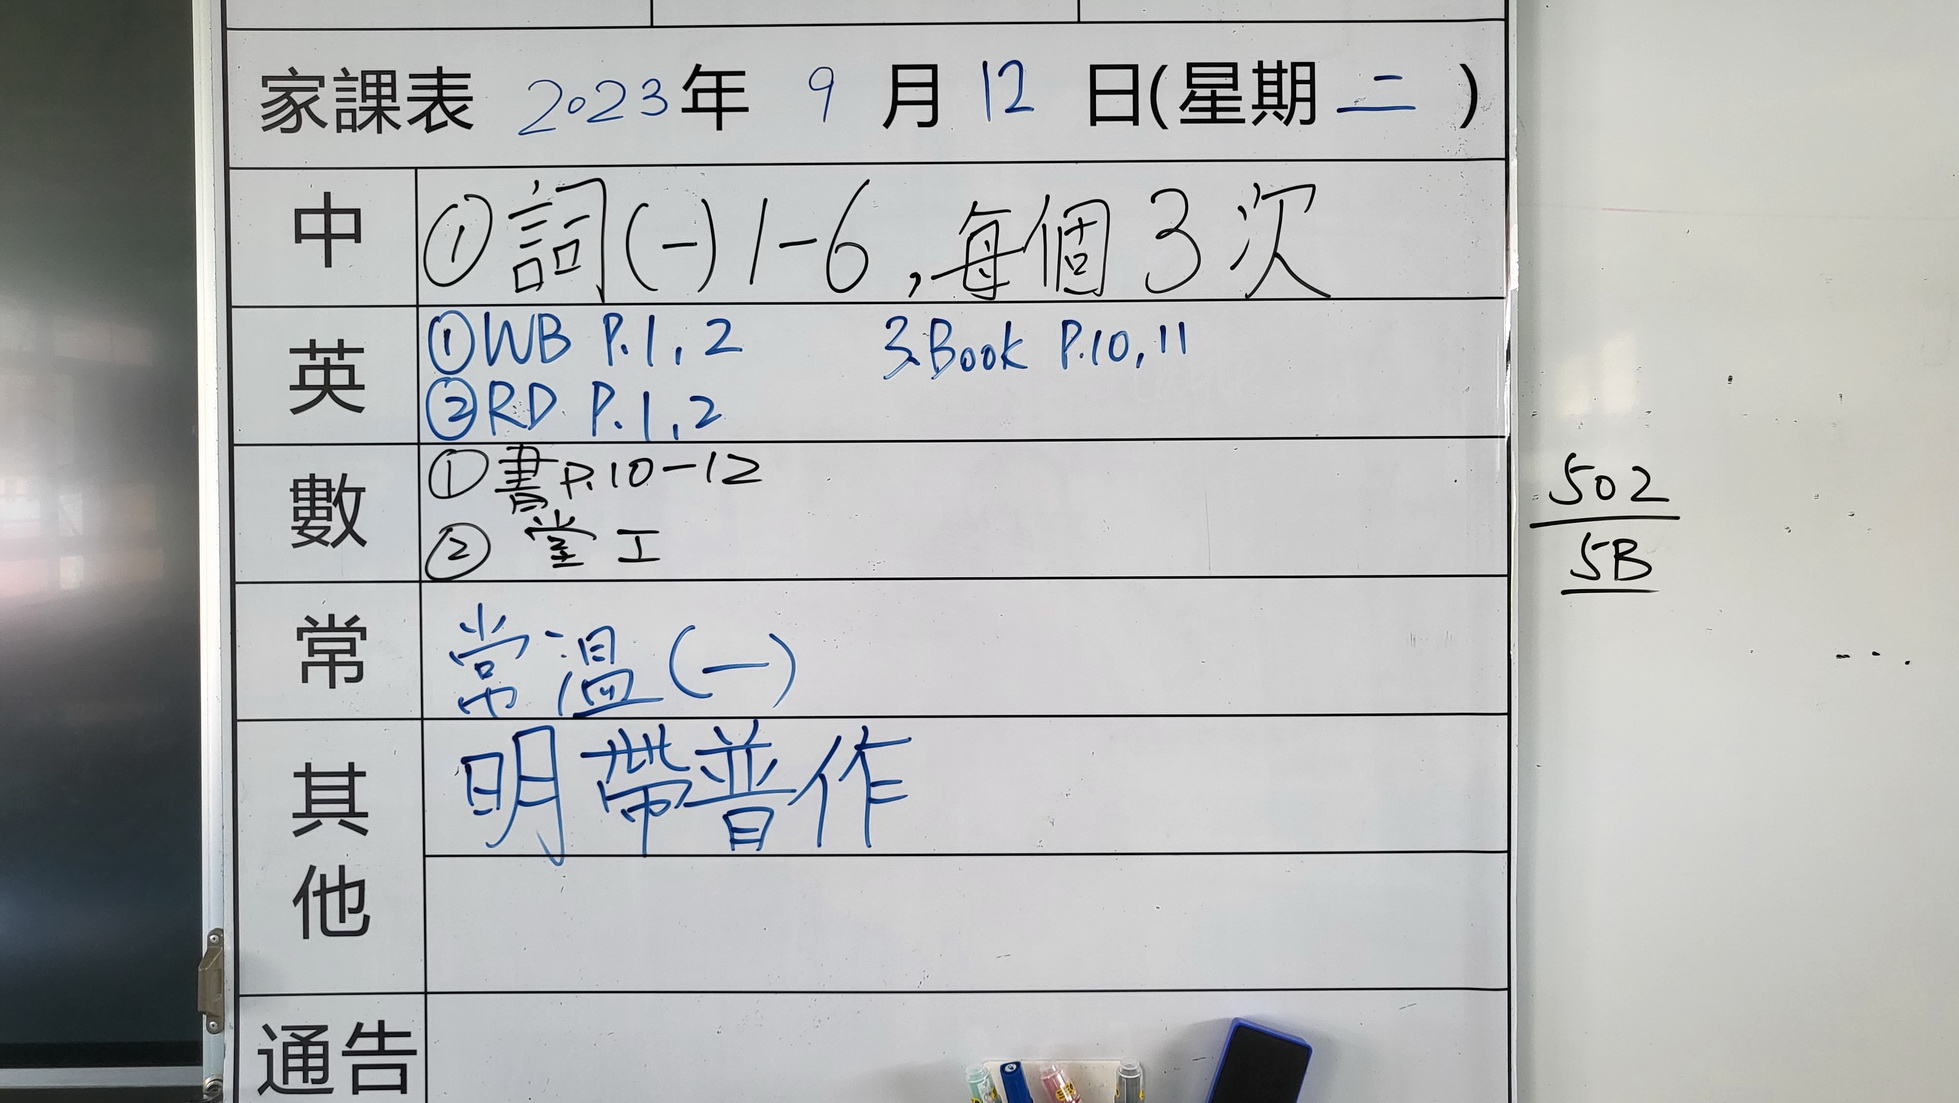 家課表 2023年 9 月 12 日(星期二)
中 ①詞(一)1-6,每個3次
英 ①WB P.1,2 3.Book P.10,11
②RD P.1,2
數 ①書P.10-12
②堂工
常 常温(一)
其他 明帶普作
通告
502
5B